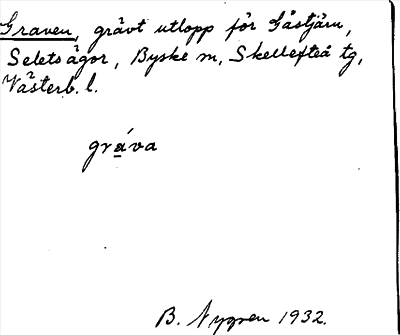 Graven, grävt utlopp för Gåstjärn,
Selets ägor, Byske sn, Skellefteå tg,
Västerb. l.
gráva
B. Nygren 1932.